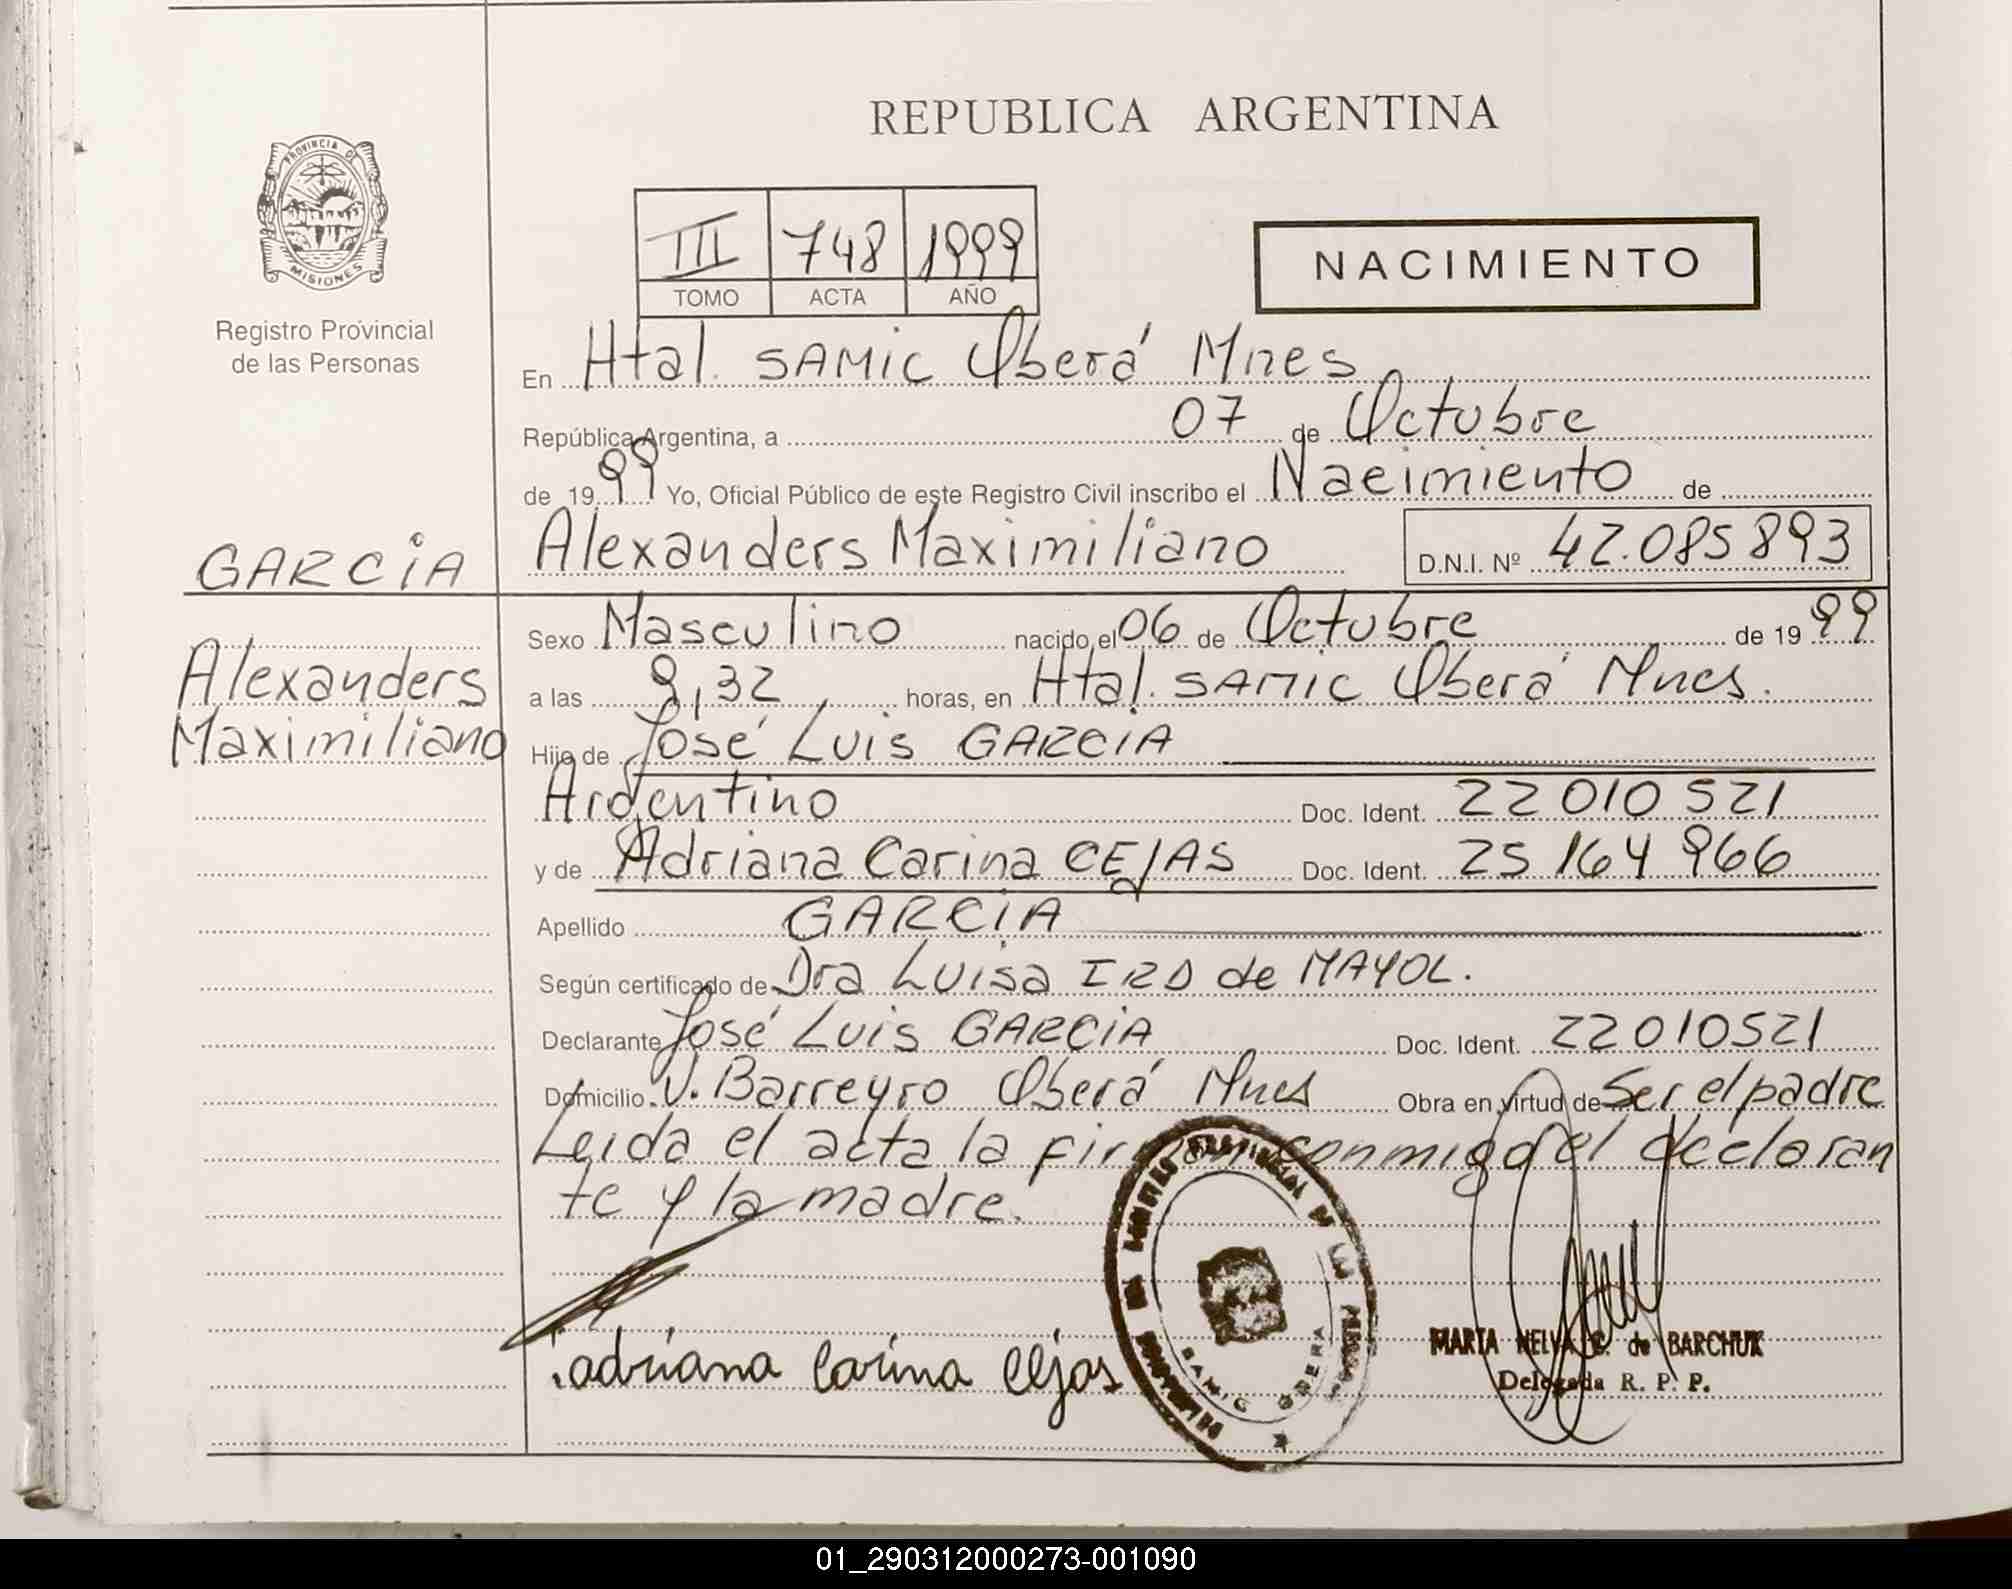 REPUBLICA ARGENTINA
PROVINCIA DE
MISIONES
Registro Provincial
de las Personas
III 748 1999
TOMO ACTA AÑO
NACIMIENTO
En Htal. SAMIC Oberá Mnes
República Argentina, a 07 de Octubre
de 1999 Yo, Oficial Público de este Registro Civil inscribo el Nacimiento de
GARCIA
Alexanders Maximiliano D.N.I. Nº 42.085893
Alexanders
Maximiliano
Sexo Masculino nacido el 06 de Octubre de 1999
a las 9,32 horas, en Htal. SAMIC Oberá Mnes.
Hijo de José Luis GARCIA
Argentino Doc. Ident. 22 010 521
y de Adriana Carina CEJAS Doc. Ident. 25 164 966
Apellido GARCIA
Según certificado de Dra Luisa IRD de MAYOL.
Declarante José Luis GARCIA Doc. Ident. 22010521
Domicilio V. Barreyro Oberá Mnes Obra en virtud de Ser el padre
Leida el acta la firman conmigo el declaran
te y la madre.
adriana Carina Cejas
SAMIC OBERA
MARTA NELVA C. de BARCHUK
Delegada R. P. P.
01_290312000273-001090